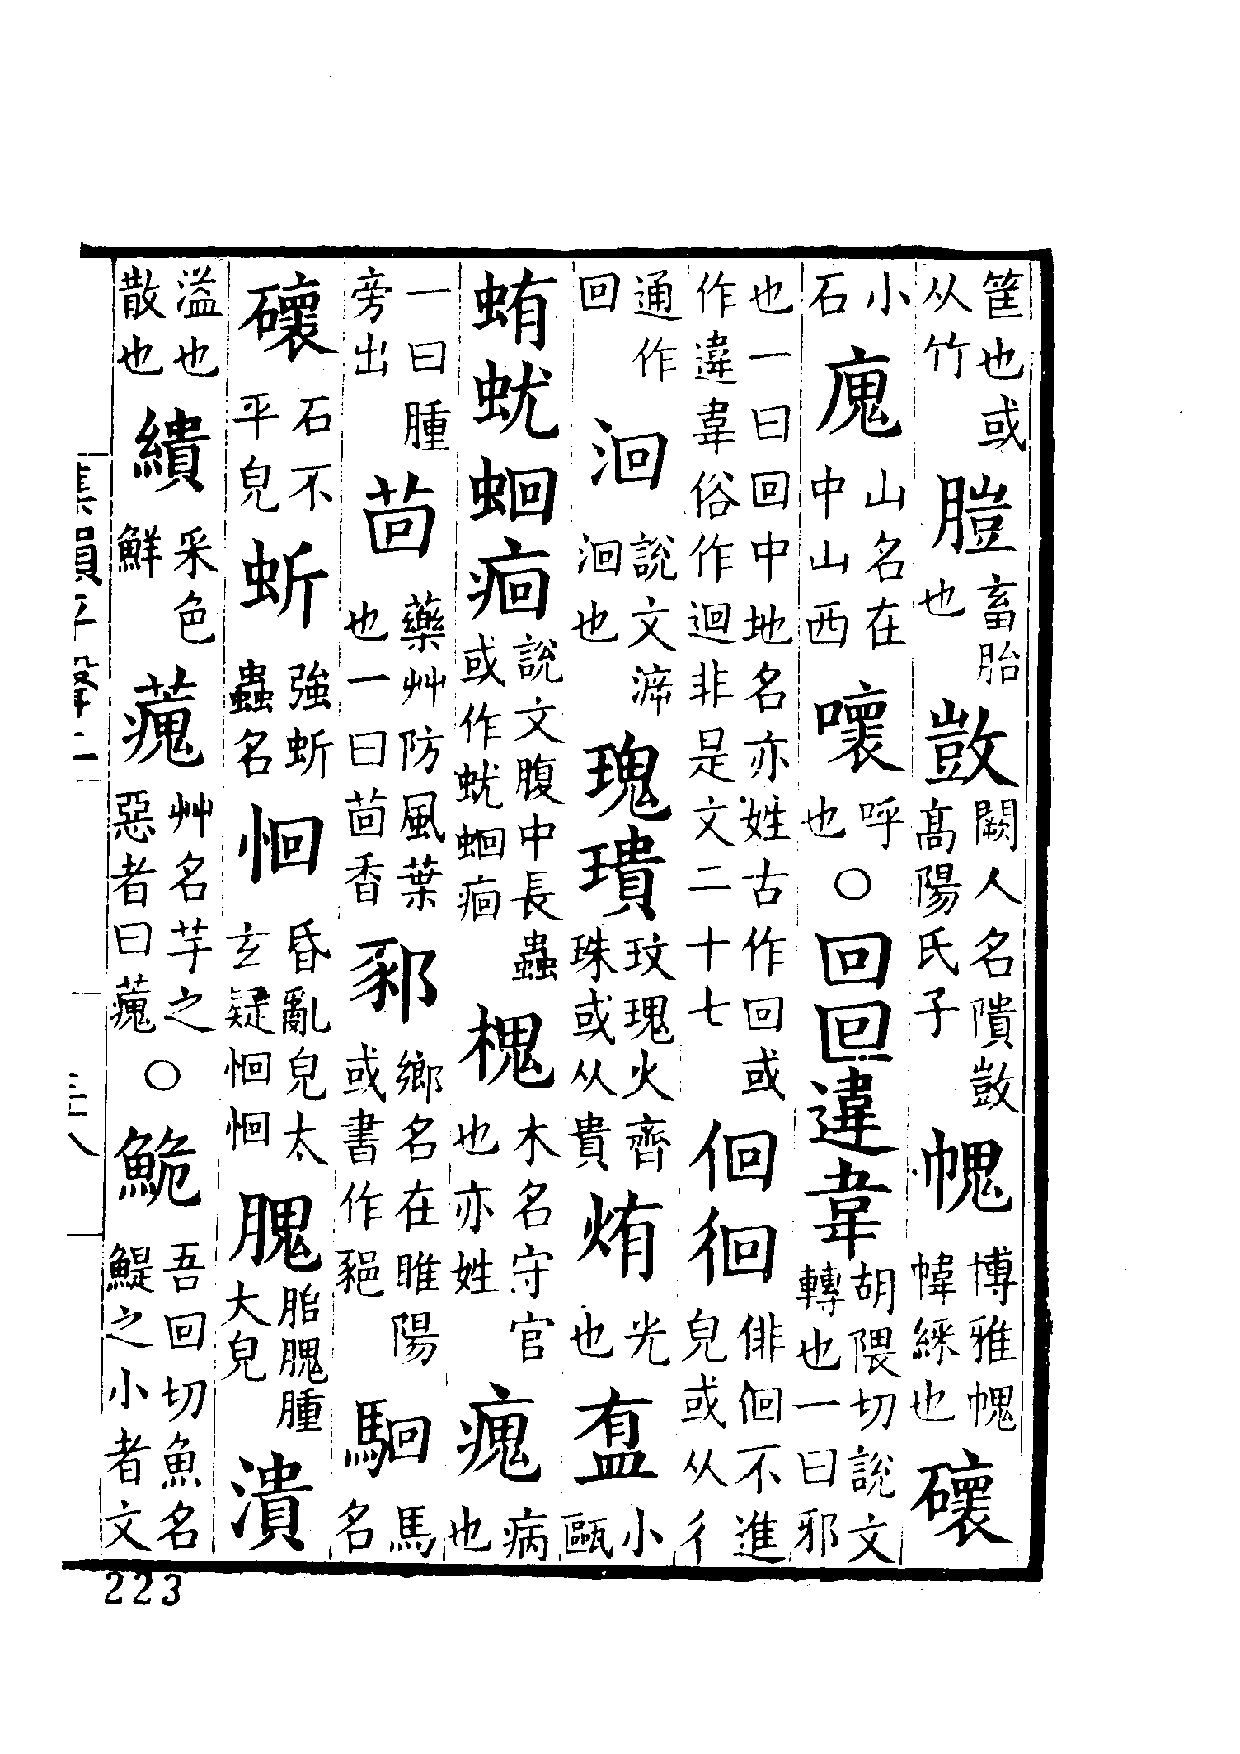 筐也或从竹 䐩畜胎也 敳闕人名隤敳高陽氏子 㡢博雅㡢幃縩也 𥗓
小石 廆山名在中山西 㠢呼也〇回囘違韋胡隈切說文轉也一曰邪
也一曰回中地名亦姓古作囘或作違韋俗作迴非是文二十七 佪徊俳佪不進皃或从彳
通作回 洄說文㴑洄也 瑰璝玟瑰火齊珠或从貴 烠光也 盍小甌
蛕蚘蛔痐說文腹中長蟲或作蚘蛔痐 槐木名守官也亦姓 瘣病也
一曰腫旁出 茴藥艸防風葉也一曰茴香 鄉名在睢陽或書作 駬馬名
𥗓石不平皃 蚚強蚚蟲名 恛昏亂皃太玄疑恛恛 膭胎膭腫大皃 潰
溢也散也 繢采色鮮 蘹艸名芋之惡者曰蘹〇鮠吾回切魚名鯷之小者文
集韻平聲二
三十八
223